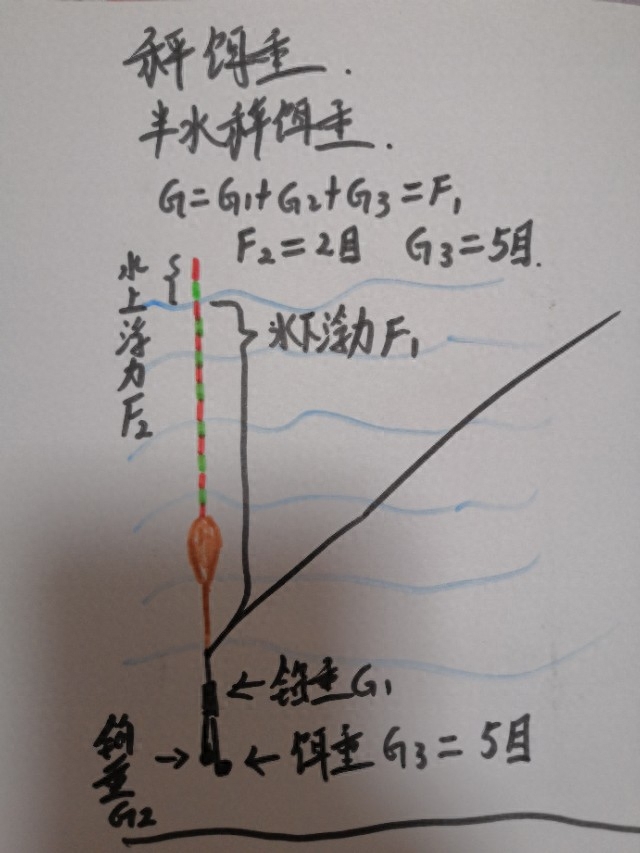 秤饵重.
半水秤饵重.
G=G1+G2+G3=F1
F2=2目 G3=5目.
水上浮力F2
水下浮力F1
←铅重G1
钩重G2→
←饵重G3=5目